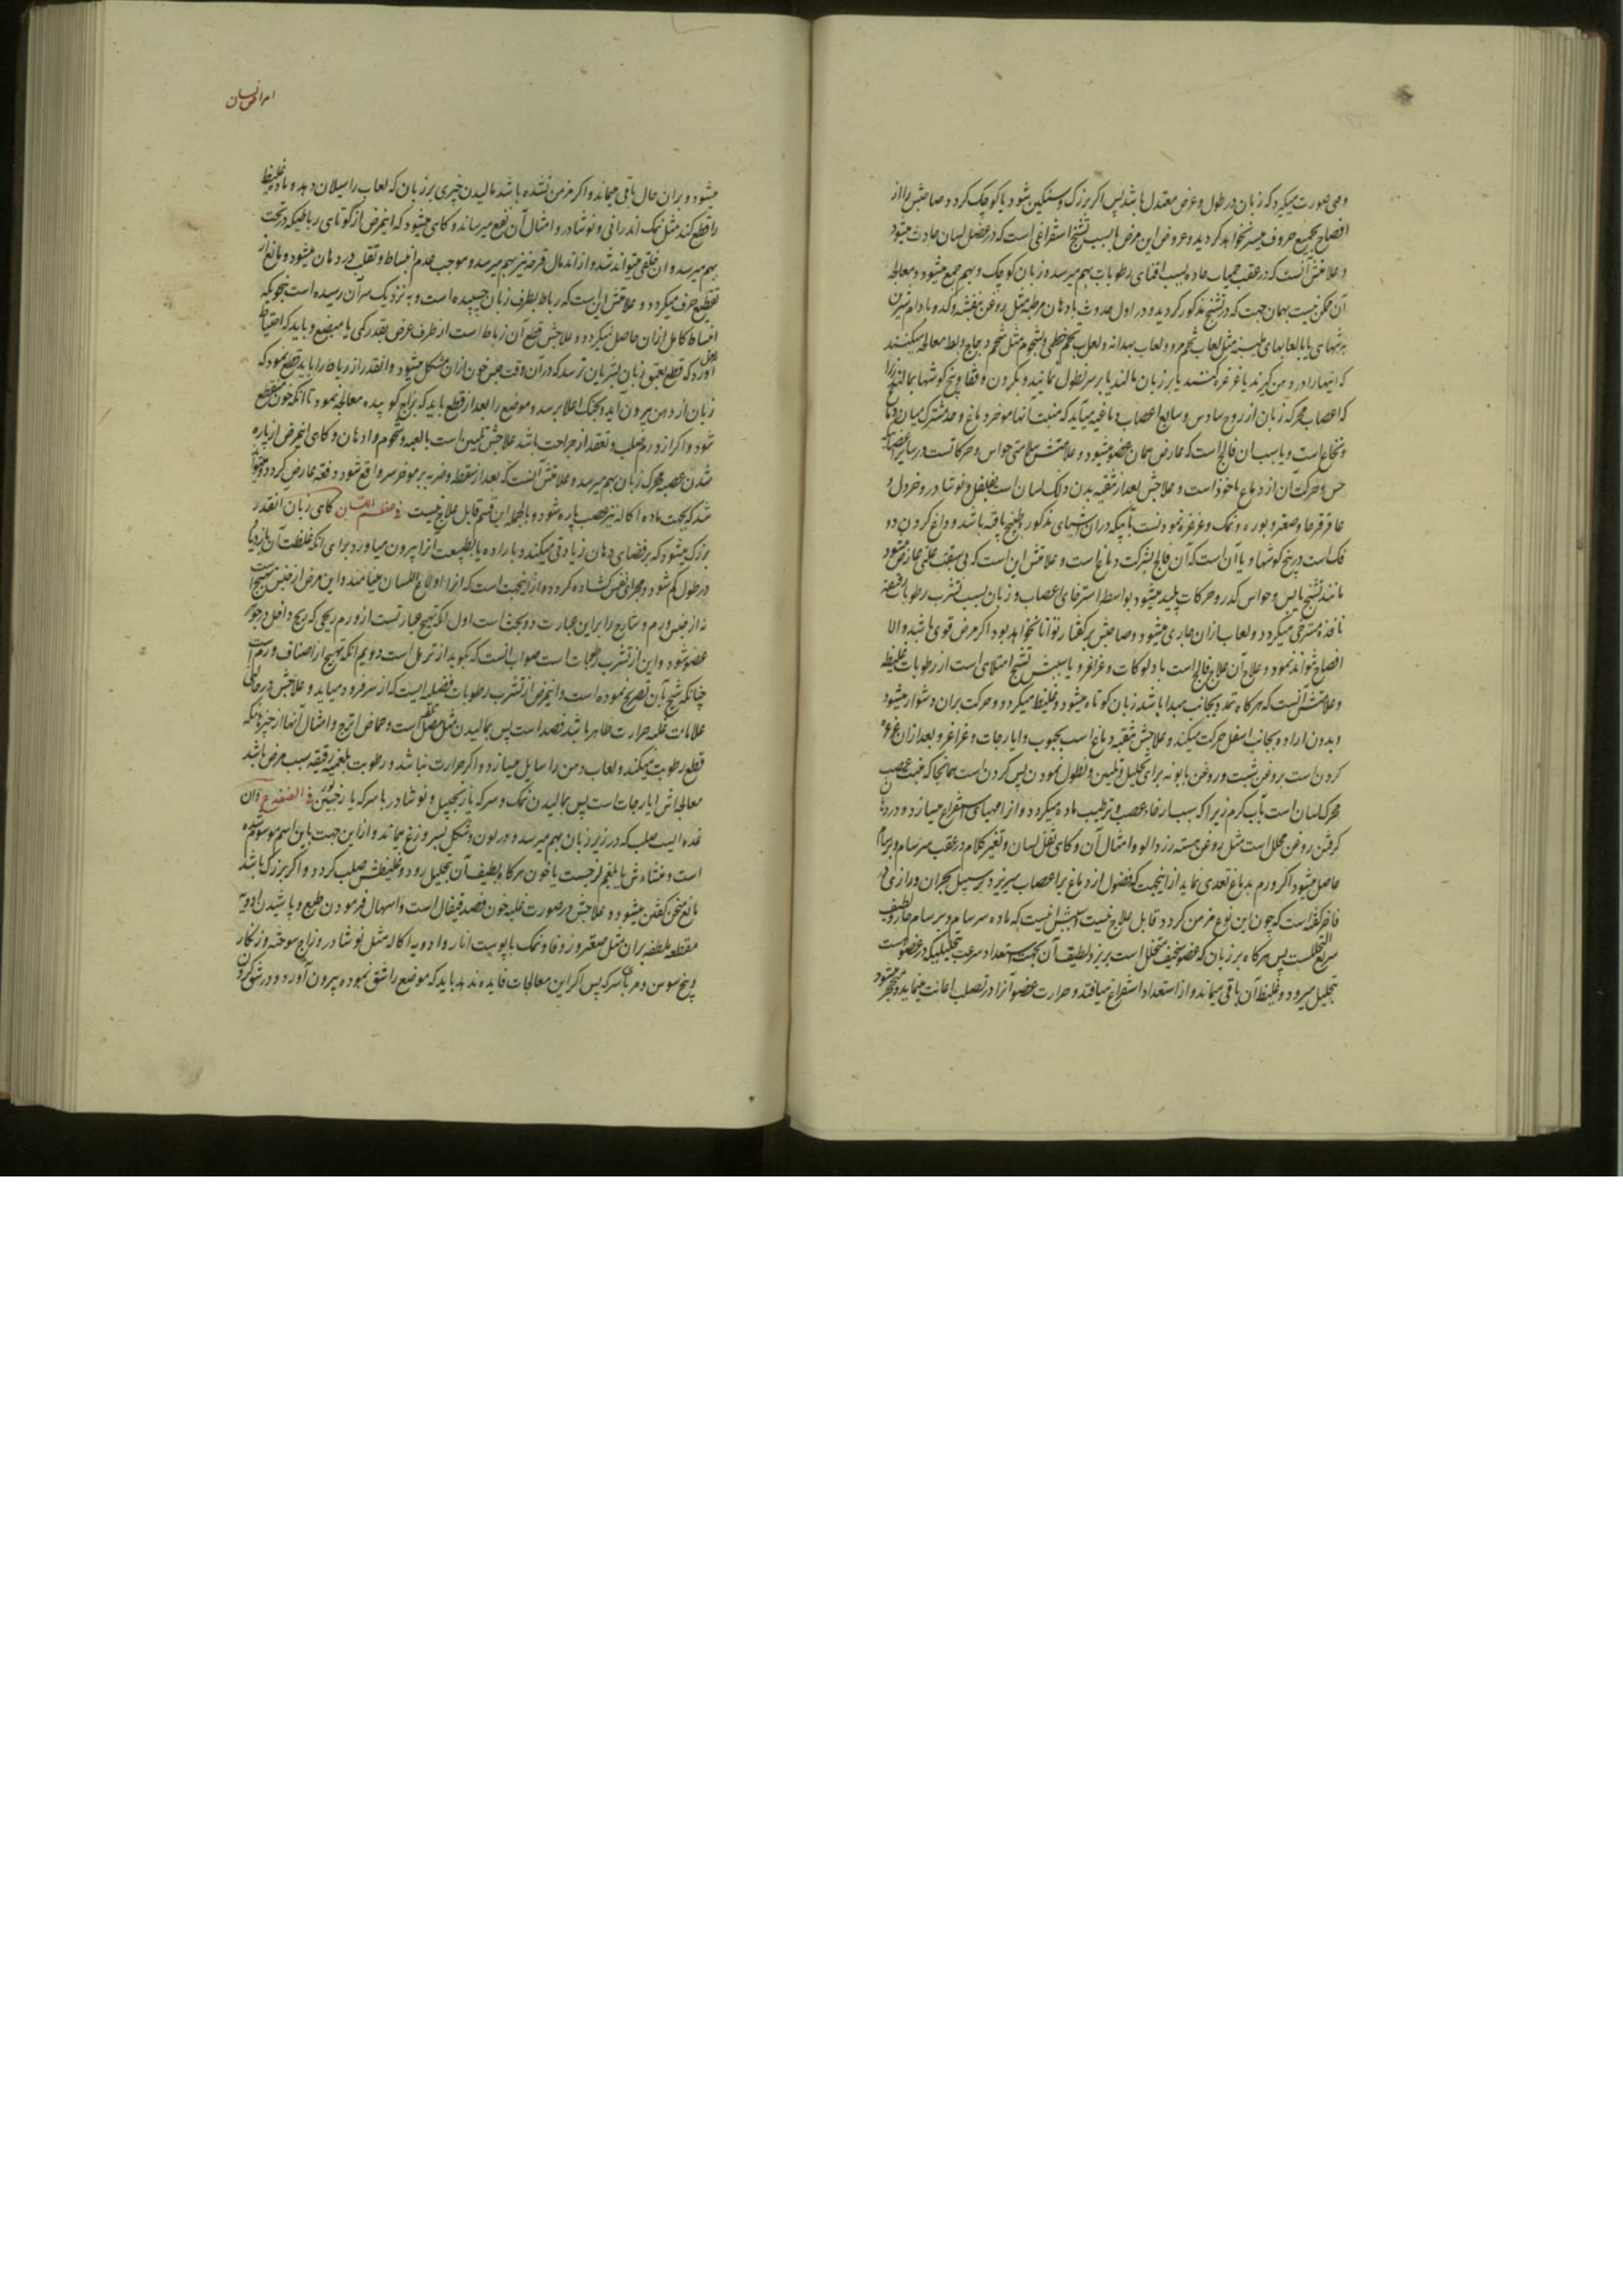 وهی صورت میکیرد که زبان در طول و عرض معتدل باشد پس اکر بزرک و سنکین شود یا کوچک کردد صاحبش را از
افصاح بجمیع حروف میسر نخواهد کردید و عروض این مرض یا بسبب تشنج استفراغی است که در عضل لسان حادث میشود
و علامتش آنست که در عقب حمیات حاده بسبب افنای رطوبات بهم میرسد و زبان کوچک و بهم جمع میشود و معالجه
آن ممکن نیست بهمان جهت که در تشنج مذکور کردید و در اول حدوث بادهان مرطبه مثل روغن بنفشه و کدو و بادام شیرین
به تنهای یا بالعابهای ملینه مثل لعاب تخم مرو و لعاب بهدانه و لعاب تخم خطمی و شحوم مثل شحم دجاج و بط معالجه میکنند
که اینها را در دهن کیرند یا غرغره کنند یا بر زبان مالند یا بر سر نطول نمایند و بکردن و قفا و بیخ کوشها بمالند زیرا
که اعصاب محرکه زبان از زوج سادس و سابع اعصاب دماغیه میآید که منبت آنها موخر دماغ و حد مشترک میان دماغ
و نخاع است و یا سبب آن فالج است که عارض همان عضو میشود و علامتش سلامتی حواس و حرکاتست در سایر اعضا
حس و حرکت آن از دماغ ماخوذ است و علاجش بعد از تنقیه بدن دلک لسان است بفلفل و نوشادر و خردل و
عاقرقرحا و صعتر و بوره و نمک و غرغره نمودنست بآبیکه در آن اشیای مذکوره طبیخ یافته باشد و داغ کردن دو
فک است در بیخ کوشها و یا آن است که آن فالج بشرکت دماغ است و علامتش این است که بی سبقت علتی عارض میشود
مانند تشنج یابس و حواس کدر و حرکات پلید میشود بواسطه استرخای اعصاب و زبان بسبب تشرب رطوبات
نافذه مسترخی میکردد و لعاب از آن جاری میشود و صاحبش بر کفتار توانا نخواهد بود اکر مرض قوی باشد و الا
افصاح نتواند نمود و علاج آن علاج فالج است با دلوکات و غراغر و یا سببش تشنج امتلای است از رطوبات غلیظه
و علامتش آنست که هرکاه تمدد بجانب مبدا باشد زبان کوتاه میشود و غلیظ میکردد و حرکت بران دشوار میشود
و بدون اراده بجانب اسفل حرکت میکند و علاجش تنقیه دماغ است بحبوب و ایارجات و غراغر و بعد از آن غرغره
کردن است بروغن شبت و روغن بابونه برای تحلیل و تلیین و نطول نمودن پس کردن است همانجا که منبت عصب
محرک لسان است بآب کرم زیرا که سبب ارخاء عصب و ترطیب ماده میکردد و آنرا مهیای استفراغ میسازد و در دهان
کرفتن روغن محلل است مثل روغن هسته زردالو و امثال آن و کاهی ثقل لسان و تغیر کلام در عقب سرسام و برسام
حاصل میشود اکر ورم بدماغ تعدی نماید از اینجهت که فضول از دماغ بر اعصاب میریزد بر سبیل بحران و رازی در
فاخر کفته است که چون این نوع مزمن کردد قابل علاج نیست و سببش اینست که ماده سرسام و برسام حار و لطیف
سریع التحلل است پس هرکاه بر زبان که عضو سخیف متخلخل است بریزد لطیف آن بجهت استعداد سرعت تحلیلیکه در عضو هست
بتحلیل میرود و غلیظ آن باقی میماند و از استعداد استفراغ میافتد و حرارت عضو آنرا در تصلب اعانت مینماید و متحجر میشود
امراض لسان
میشود و بران حال باقی میماند و اکر مزمن نشده باشد مالیدن چیزی بر زبان که لعاب را سیلان دهد و ماده غلیظ
را قطع کند مثل نمک اندرانی و نوشادر و امثال آن نفع میرساند و کاهی میشود که اینمرض از کوتاهی رباطیکه در تحت
بهم میرسد و آن خلقی میتواند شد و از اندمال قرحه نیز بهم میرسد و موجب عدم انبساط و تقلب در دهان میشود و مانع از
تقطیع حرف میکردد و علامتش این است که رباط بطرف زبان چسپیده است و به نزدیک سر آن رسیده است بنحویکه
انبساط کامل ازان حاصل نمیکردد و علاجش قطع آن رباط است از طرف عرض بقدر کمی با مبضع و باید که احتیاط
آورد که قطع بعمق زبان بشریان نرسد که در آن وقت حبس خون ازان مشکل میشود و آنقدر از رباط را باید قطع نمود که
زبان از دهن بیرون آید و بحنک اعلا برسد و موضع را بعد از قطع باید که بزاج کوبیده معالجه نمود تا آنکه خون منقطع
شود و اکر از ورم صلب و تعقد از جراحت باشد علاجش تلیین است بالعبه و شحوم و ادهان و کاهی اینمرض از پاره
شدن عصبه محرک زبان بهم میرسد و علامتش آنست که بعد از سقطه و ضربه بر موخر سر واقع شود دفعة عارض کردد و میتواند
شد که بجهت ماده اکاله نیز عصب پاره شود و بالجمله این قسم قابل علاج نیست فی عظم اللسان کاهی زبان آنقدر
بزرک میشود که بر فضای دهان زیادتی میکند و باراده یا بطبیعت آنرا بیرون میاورد برای آنکه غلظت آن بازدیاد
در طول کم شود و مجرای نفس کشاده کردد و از اینجهت است که آنرا ادلاع اللسان مینامند و این مرض از جنس تهیج است
نه از جنس ورم و شارح را بر این عبارت دو بحث است اول آنکه تهیج عبارتست از ورم ریحی که ریح داخل در جوهر
عضو شود و این از تشرب رطوبات است صواب آنست که بکوید از ترهل است دویم آنکه تهیج از اصناف ورم است
چنانکه شیخ بآن تصریح نموده است و اینمرض از تشرب رطوبات فضلیه ایست که از سر فرود میاید و علاجش در حالتی که
علامات غلبه حرارت ظاهر باشد فصد است پس بمالیدن مثل مصل است و حماض اترج و امثال آنها از چیزها که
قطع رطوبت میکند و لعاب دهن را سایل میسازد و اکر حرارت نباشد و رطوبت بلغمیه رقیقه سبب مرض باشد
معالجه اش ایارجات است پس بمالیدن نمک و سرکه یا زنجبیل و نوشادر با سرکه یا زنجبیل فی الضفدع و آن
غده ایست صلب که در زیر زبان بهم میرسد و در لون و شکل بسر وزغ میماند و از این جهت باین اسم موسوم شده
است و منشاءش یا بلغم لزجست یا خون هرکاه لطیف آن بتحلیل رود و غلیظش صلب کردد و اکر بزرک باشد
مانع سخن کفتن میشود و علاجش در صورت غلبه خون فصد قیفال است و اسهال فرمودن طبع و پاشیدن ادویه
مقطعه ملطفه بران مثل صعتر و زوفا و نمک با پوست انار و ادویه اکاله مثل نوشادر و زاج سوخته و زنکار
و بیخ سوسن و مر با سرکه پس اکر این معالجات فایده ندهد باید که موضع را شق نموده بیرون آورد و در شق کردن